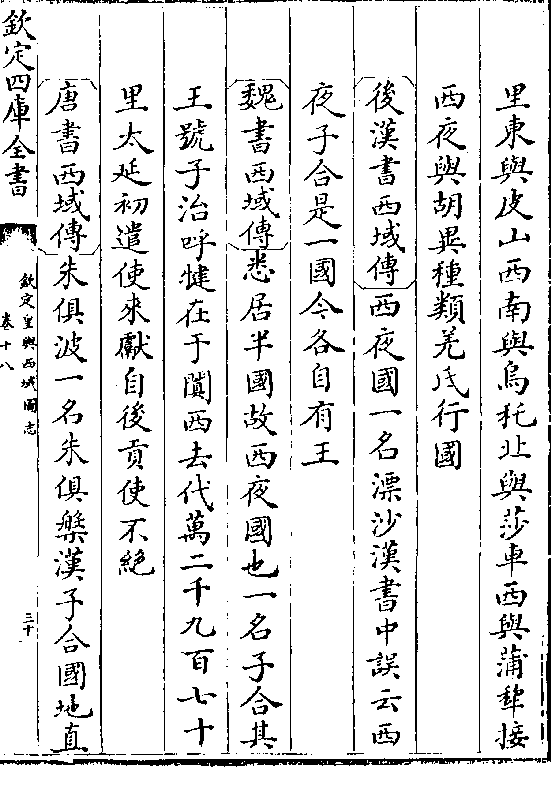 里東與皮山西南與烏秅北與莎車西與蒲犂接
西夜與胡異種類羌氐行國
後漢書西域傳西夜國一名漂沙漢書中誤云西
夜子合是一國今各自有王
魏書西域傳悉居半國故西夜國也一名子合其
王號子治呼犍在于闐西去代萬二千九百七十
里太延初遣使來獻自後貢使不絶
唐書西域傳朱俱波一名朱俱槃漢子合國地直
欽定四庫全書
欽定皇輿西域圖志
卷十八
三十